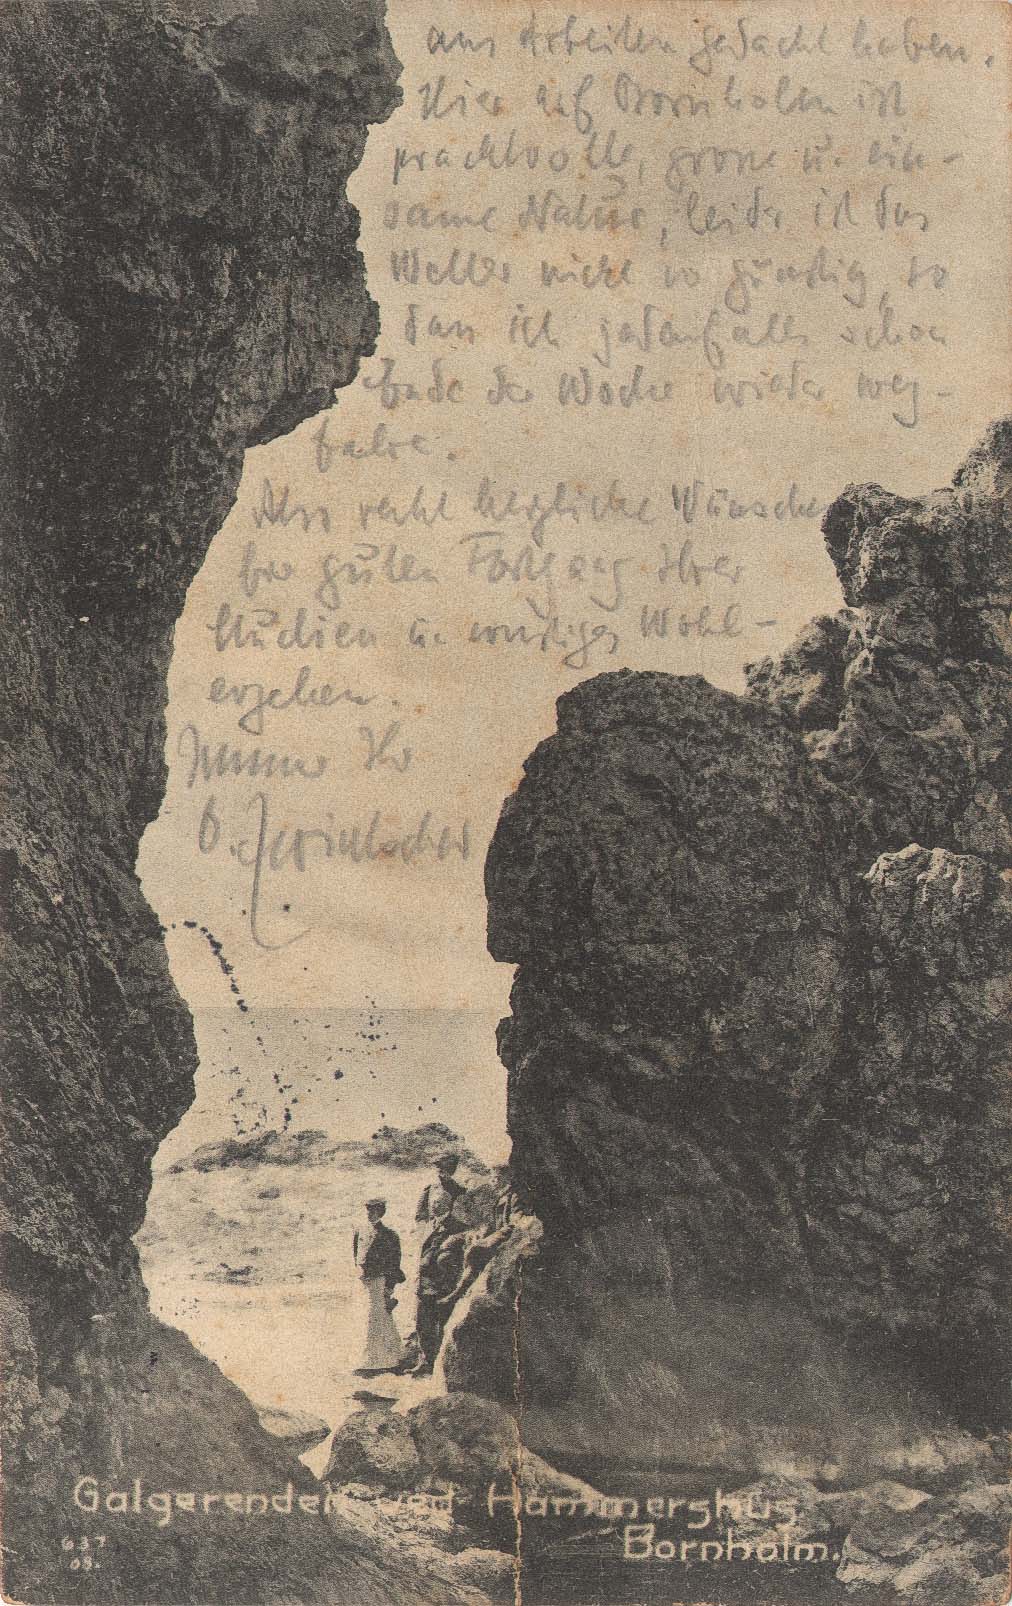 ans Arbeiten gedacht haben.
Hier auf Bornholm ist
prachtvolle, grosse u. ein-
same Natur, leider ist das
Wetter nicht so günstig, so
dass ich jedenfalls schon
Ende der Woche wieder weg-
fahre.
Also recht herzliche Wünsche
für guten Fortgang Ihrer
Studien u. sonstiges Wohl-
ergehen.
Immer Ihr
O. Zwintscher
Galgerenden ved Hammershus
Bornholm.
637
05.